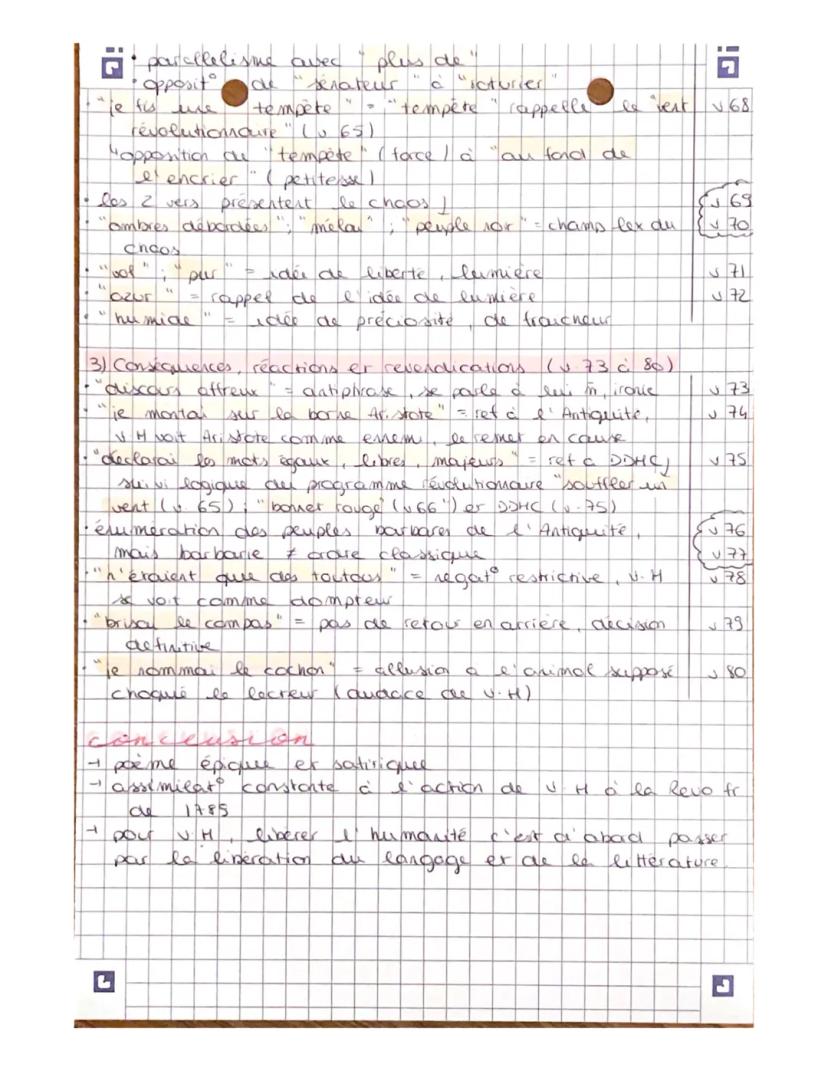 • parallélisme avec "plus de"
• opposit° de "sénateur" à "roturier"
• "je fis une tempête" = "tempête" rappelle le "vent v 68
révolutionnaire" (v 65)
↳ opposition de "tempête" (force) à "au fond de
l'encrier" (petitesse)
• les 2 vers présentent le chaos v 69
• "ombres débordées"; "mêlai"; "peuple noir" = champ lex du v 70
chaos
• "vol"; "pur" = idée de liberté, lumière v 71
• "azur" = rappel de l'idée de lumière v 72
• "humide" = idée de préciosité, de fraîcheur
3) Conséquences, réactions et revendications (v. 73 à 80)
• "discours affreux" = antiphrase, se parle à lui m̂, ironie v 73
• "je montai sur la borne Aristote" = ref à l'Antiquité, v 74
VH voit Aristote comme ennemi, le remet en cause
• "déclarai les mots égaux, libres, majeurs" = ref à DDHC v 75
suivi logique du programme révolutionnaire "souffler un
vent (v. 65); "bonnet rouge" (v 66") et DDHC (v. 75)
• énumération des peuples barbares de l'Antiquité, v 76
mais barbarie ≠ ordre classique v 77
• "n'étaient que des toutous" = négat° restrictive, V.H v 78
se voit comme dompteur
• "brisai le compas" = pas de retour en arrière, décision v 79
définitive
• "je nommai le cochon" = allusion à l'animal supposé v 80
choqué le lecteur (audace de V.H)
conclusion
→ poème épique et satirique
→ assimilat° constante à l'action de V.H à la Revo fr
de 1785
→ pour V.H, libérer l'humanité c'est d'abad passer
par la libération du langage et de la littérature.